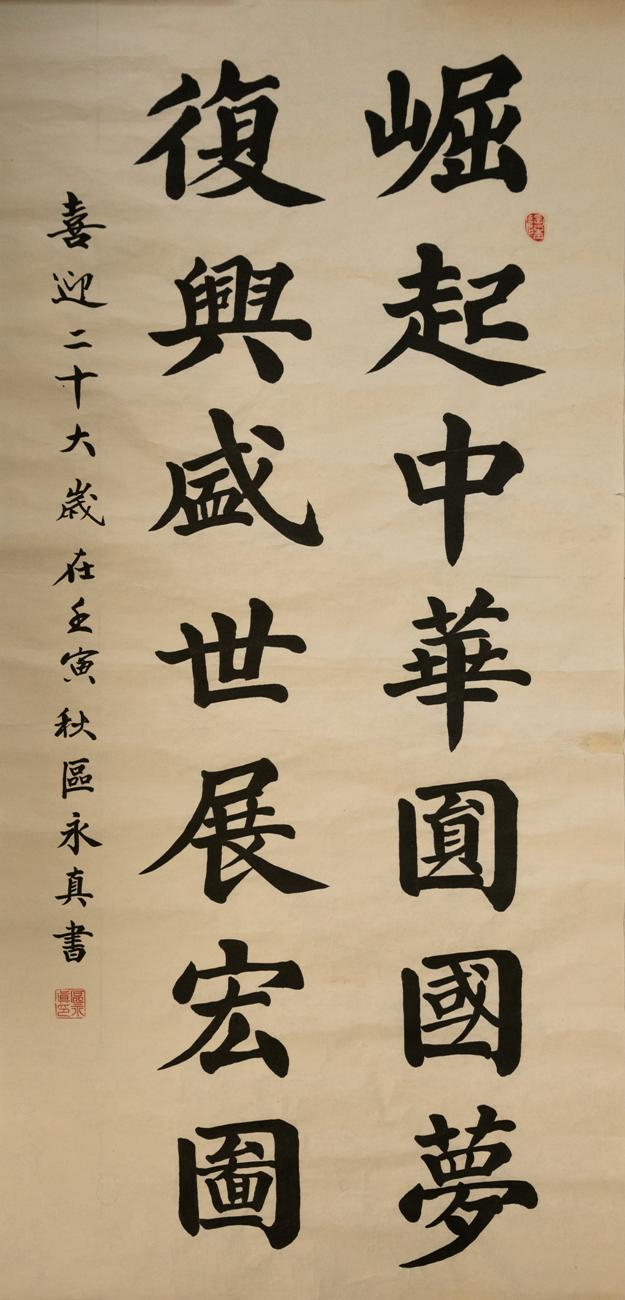 崛起中華圓國夢
復興盛世展宏圖
喜迎二十大歲在壬寅秋區永真書